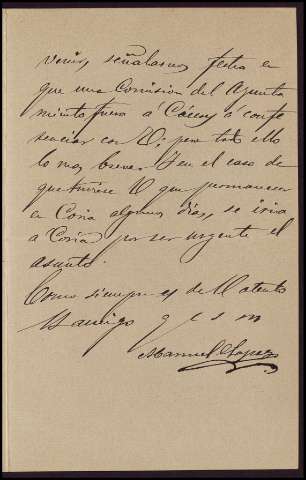 venir, señalasen fecha en
que una Comision del Ayunta
miento fuera á Cáceres á confe
renciar con V; pero todo ello
lo mas breve. Y en el caso de
que tuviese V que permanecer
en Coria algunos dias, se iria
a Coria por ser urgente el
asunto.
Como siempre es de V atento
amigo q b s m
Manuel Lopez